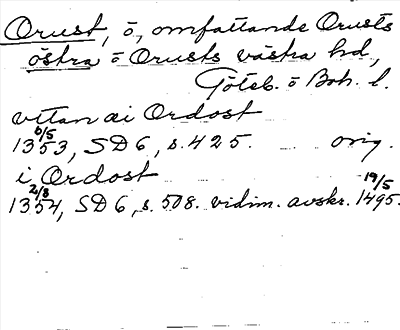 Orust, ö, omfattande Orusts
östra o Orusts västra hd,
Göteb. o Boh. l.
vttan ai Ordost
6/5
1353, SD 6, s. 425. orig.
i Ordost
2/8 19/5
1354, SD 6, s. 508. vidim. avskr. 1495.